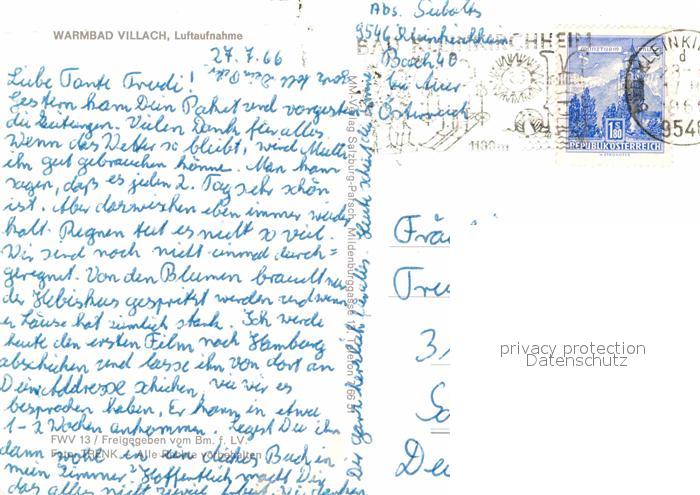 WARMBAD VILLACH, Luftaufnahme
27.7.66
Liebe Tante Trudi!
Gestern kam Dein Paket und vorgestern
die Zeitungen. Vielen Dank für alles
Wenn das Wetter so bleibt, wird Mutti
ihn gut gebrauchen können. Man kann
sagen, daß es jeden 2. Tag sehr schön
ist. Aber dazwischen eben immer wieder
kalt. Regnen tut es nicht so viel.
Wir sind noch nicht einmal durch=
geregnet. Von den Blumen braucht nur
der Hibiskus gespritzt werden und wenn
er Läuse hat ziemlich stark. Ich werde
heute den ersten Film nach Hamburg
abschicken und lasse ihn von dort an
Deine Addresse schicken, wie wir es
besprochen haben. Er kann in etwa
1-2 Wochen ankommen. Legst Du ihn
FWV 13 / Freigegeben vom Bm. f. LV.
dann wohl in ein dickes Buch in
Foto: TRENK Alle Rechte vorbehalten
mein Zimmer? Hoffentlich macht Dir
das alles nicht zuviel Arbeit. Wir danken
Dir ganz herzlich für alles. Heute scheint die Sonne
MM-Verlag Salzburg-Parsch, Mildenburggasse 12, Telefon
Abs.
9546 Kleinkirchheim
Bach 40
Österreich
KIRCHHEIM
1100m
KLEINKI
d
9546
1.80
REPUBLIK ÖSTERREICH
Frä
Tru
3
De
privacy protection
Datenschutz